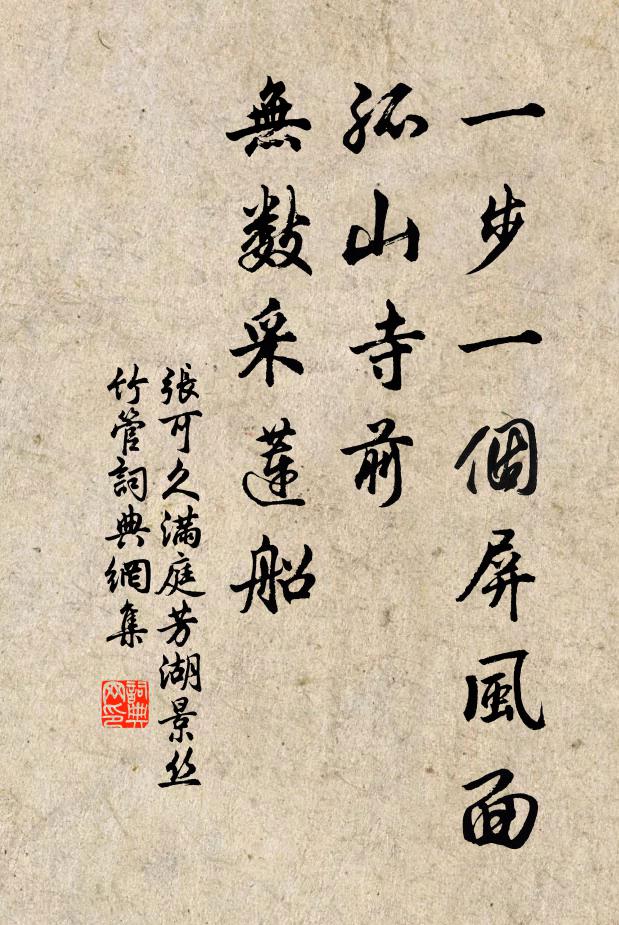 一步一個屏風面
孤山寺前
無數采蓮船
張可久滿庭芳湖景丝
竹管詞典網集
詞典网印